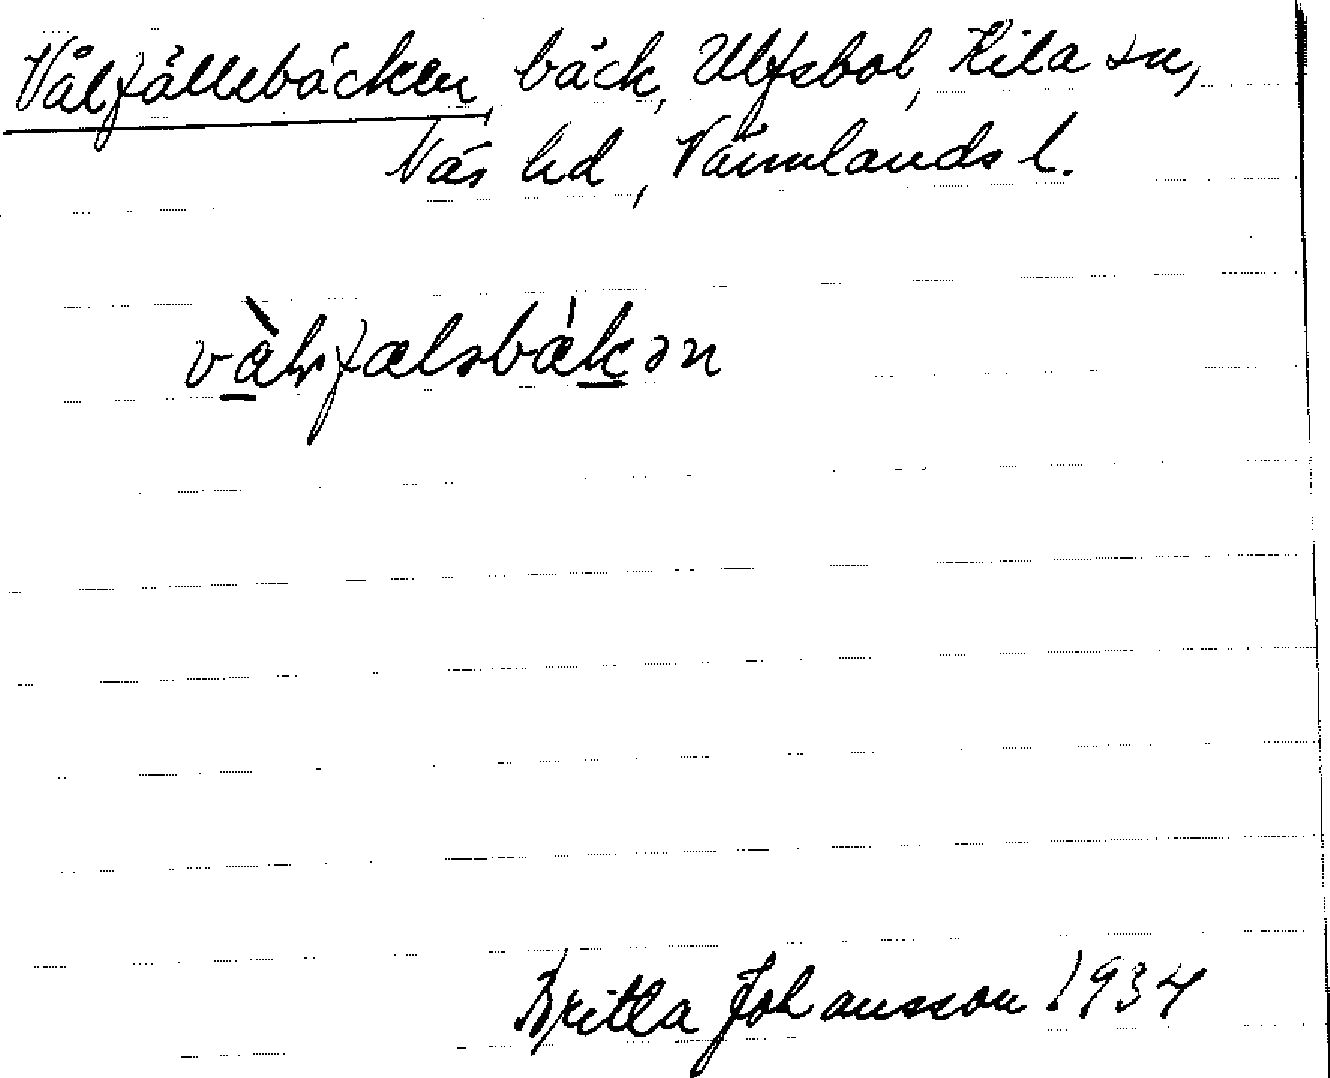 Vålfällebäcken, bäck, Ulfsbol, Kila sn,
Näs hd, Värmlands l.
Britta Johansson 1934